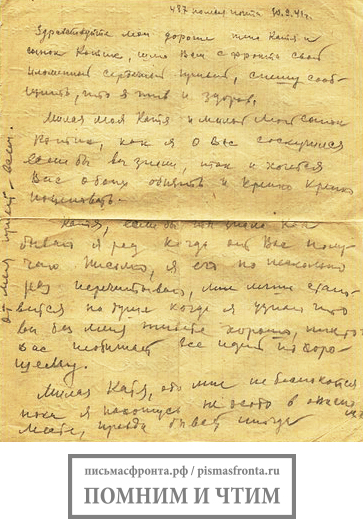 487 полев. почта 10.9.41 г.
Здравствуйте мои дорогие жена Катя и
сынок Котик, шлю Вам с фронта свой
пламенный сердечный привет, спешу сооб-
щить, что я жив и здоров.
Милая моя Катя и милый мой сынок
Котик, как я о Вас соскучился
если бы вы знали, так и хочется
Вас обоих обнять и крепко крепко
поцеловать.
Катя, если бы ты знала как
бываю я рад когда от Вас полу-
чаю письмо, я его по несколько
раз перечитываю, мне легче стано-
вится на душе когда я узнаю что
вы без меня живете хорошо, никто
вас не обижает все идет по хоро-
шему.
Милая Катя, обо мне не беспокойся
пока я нахожусь не особо в опасн
месте, правда бывает иногда
от меня привет всем.
письмасфронта.рф / pismasfronta.ru
ПОМНИМ И ЧТИМ